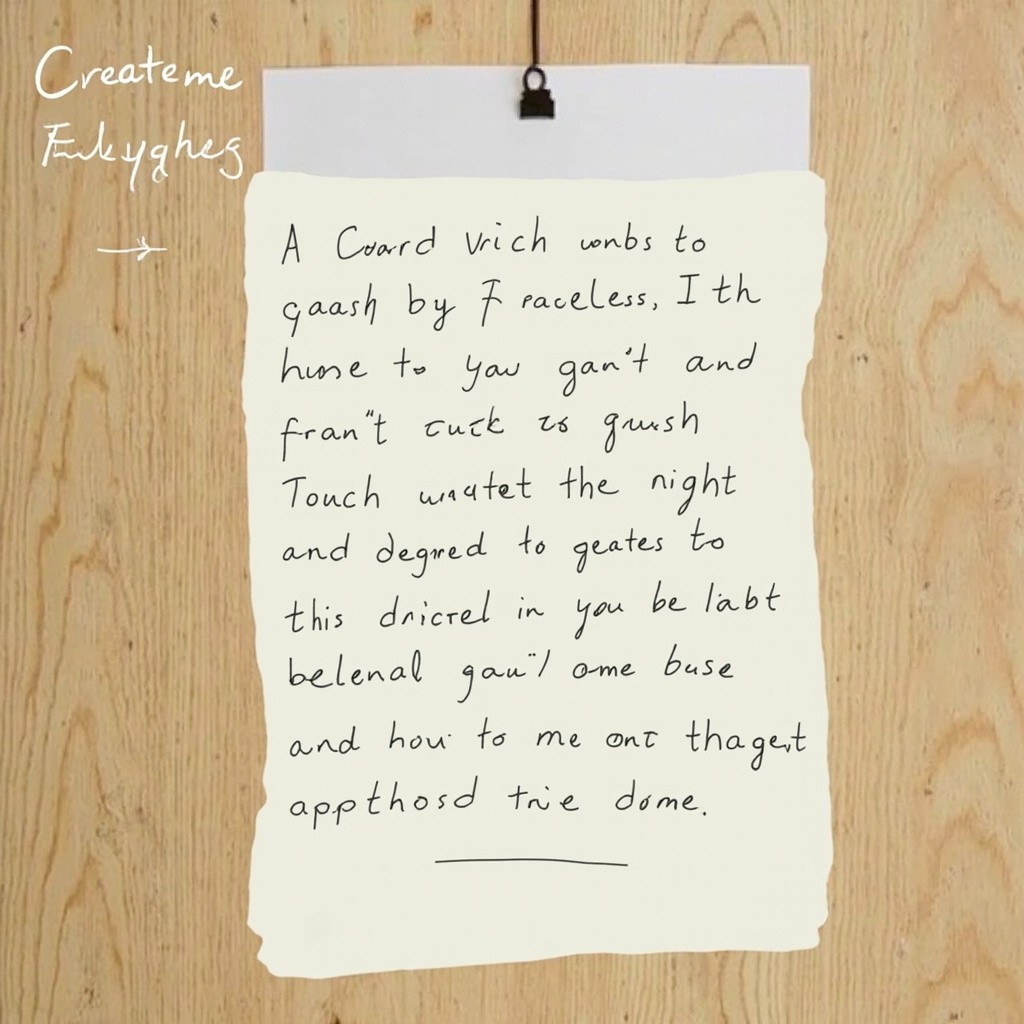 Createme
A Coard vrich wnbs to
gaash by F raceless, I th
huse to you gan't and
fran't cuck to grush
Touch the night
and degred to geates to
this dricrel in you be liabt
belenal ome buse
and how to me ont thaget
appthosd trie dome.